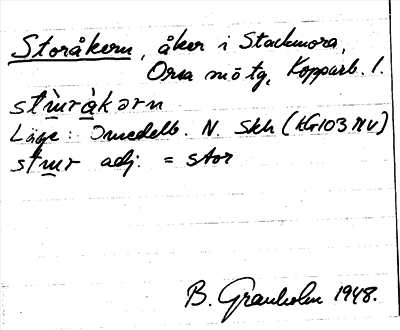 Storåkern, åker i Stackmora,
Orsa mötg, Kopparb. l.
stm̀ràkərn
Läge: Omedelb. N. Skh (kG103NV)
stmr adj. = stor
B. Granholm 1948.